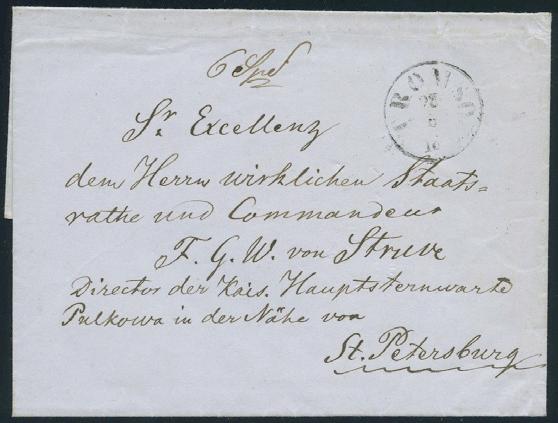 Sr. Excellenz
dem Herrn wirklichen Staats=
rathe und Commandeur
F. G. W. von Struve
Director der Kais. Hauptsternwarte
Pulkowa in der Nähe von
St. Petersburg